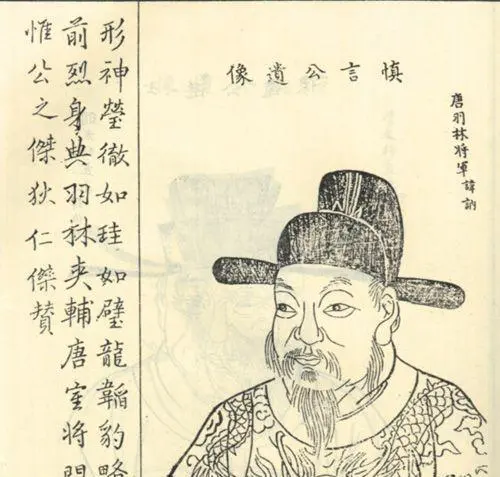 唐羽林將軍諱訥
慎言公遺像
形神瑩徹如珪如璧龍韜豹略
前烈身典羽林夾輔唐室將門
惟公之傑狄仁傑贊